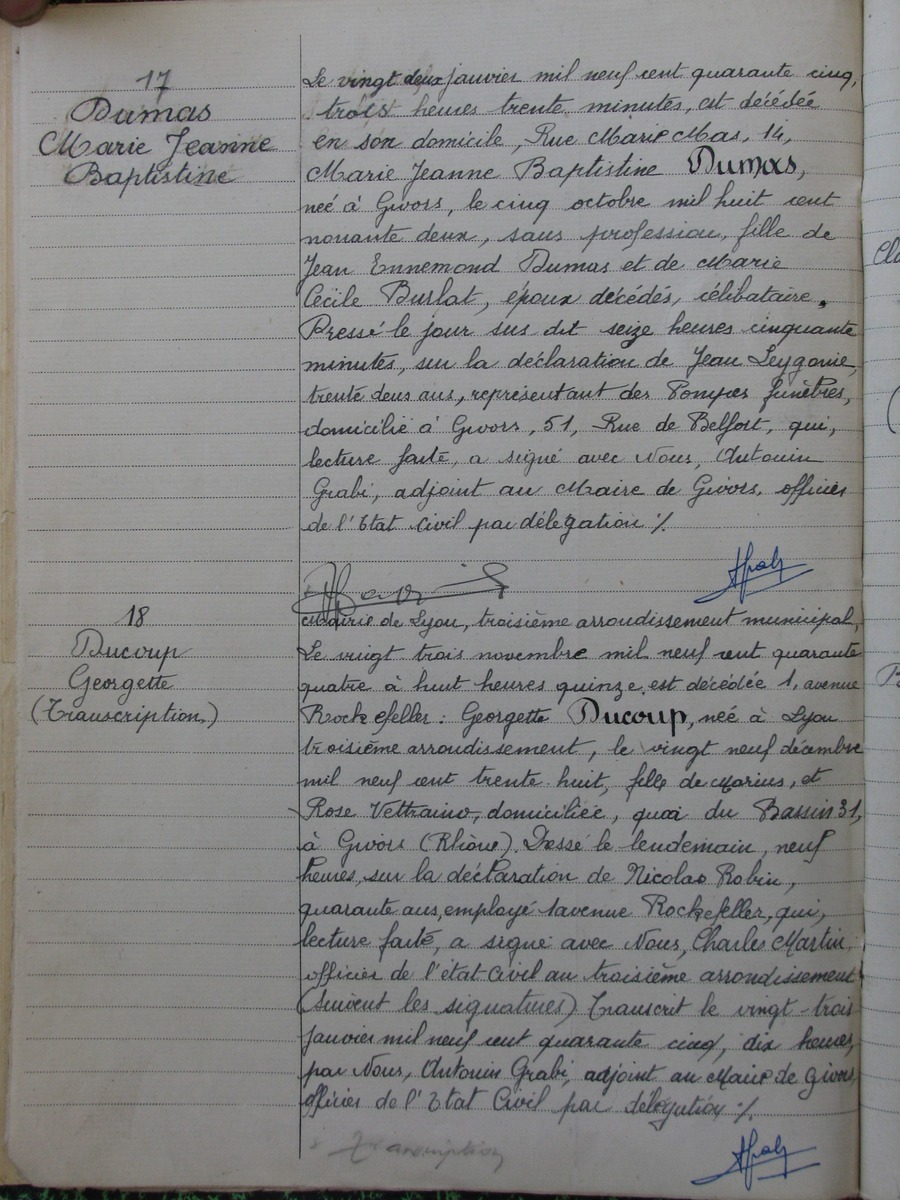 17
Dumas
Marie Jeanne
Baptistine
Le vingt deux janvier mil neuf cent quarante cinq,
trois heures trente minutes, est décédée
en son domicile, Rue Marie Mas, 14,
Marie Jeanne Baptistine Dumas,
neé à Givors, le cinq octobre mil huit cent
nonante deux, sans profession, fille de
Jean Ennemond Dumas et de Marie
Cécile Burlat, époux décédés, célibataire.
Dressé le jour sus dit seize heures cinquante
minutes, sur la déclaration de Jean Leygonie,
trente deux ans, représentant des Pompes funèbres,
domicilié à Givors, 51, Rue de Belfort, qui,
lecture faite, a signé avec Nous, Antonin
Grabi, adjoint au Maire de Givors, officier
de l'Etat Civil par délégation ./.
18
Ducoup
Georgette
(Transcription)
Mairie de Lyon, troisième arrondissement municipal,
Le vingt trois novembre mil neuf cent quarante
quatre à huit heures quinze, est décédée 1, avenue
Rockefeller : Georgette Ducoup, neé à Lyon
troisième arrondissement, le vingt neuf décembre
mil neuf cent trente huit, fille de Marius, et
Rose Vettraino, domiciliée, quai du Bassin 31,
à Givors (Rhône). Dressé le lendemain, neuf
heures, sur la déclaration de Nicolas Robin,
quarante ans, employé 1 avenue Rockefeller, qui,
lecture faite, a signé avec Nous, Charles Martin,
officier de l'état Civil au troisième arrondissement
(Suivent les signatures) Transcrit le vingt-trois
janvier mil neuf cent quarante cinq, dix heures,
par Nous, Antonin Grabi, adjoint au Maire de Givors,
officier de l'Etat Civil par délégation ./.
Transcription